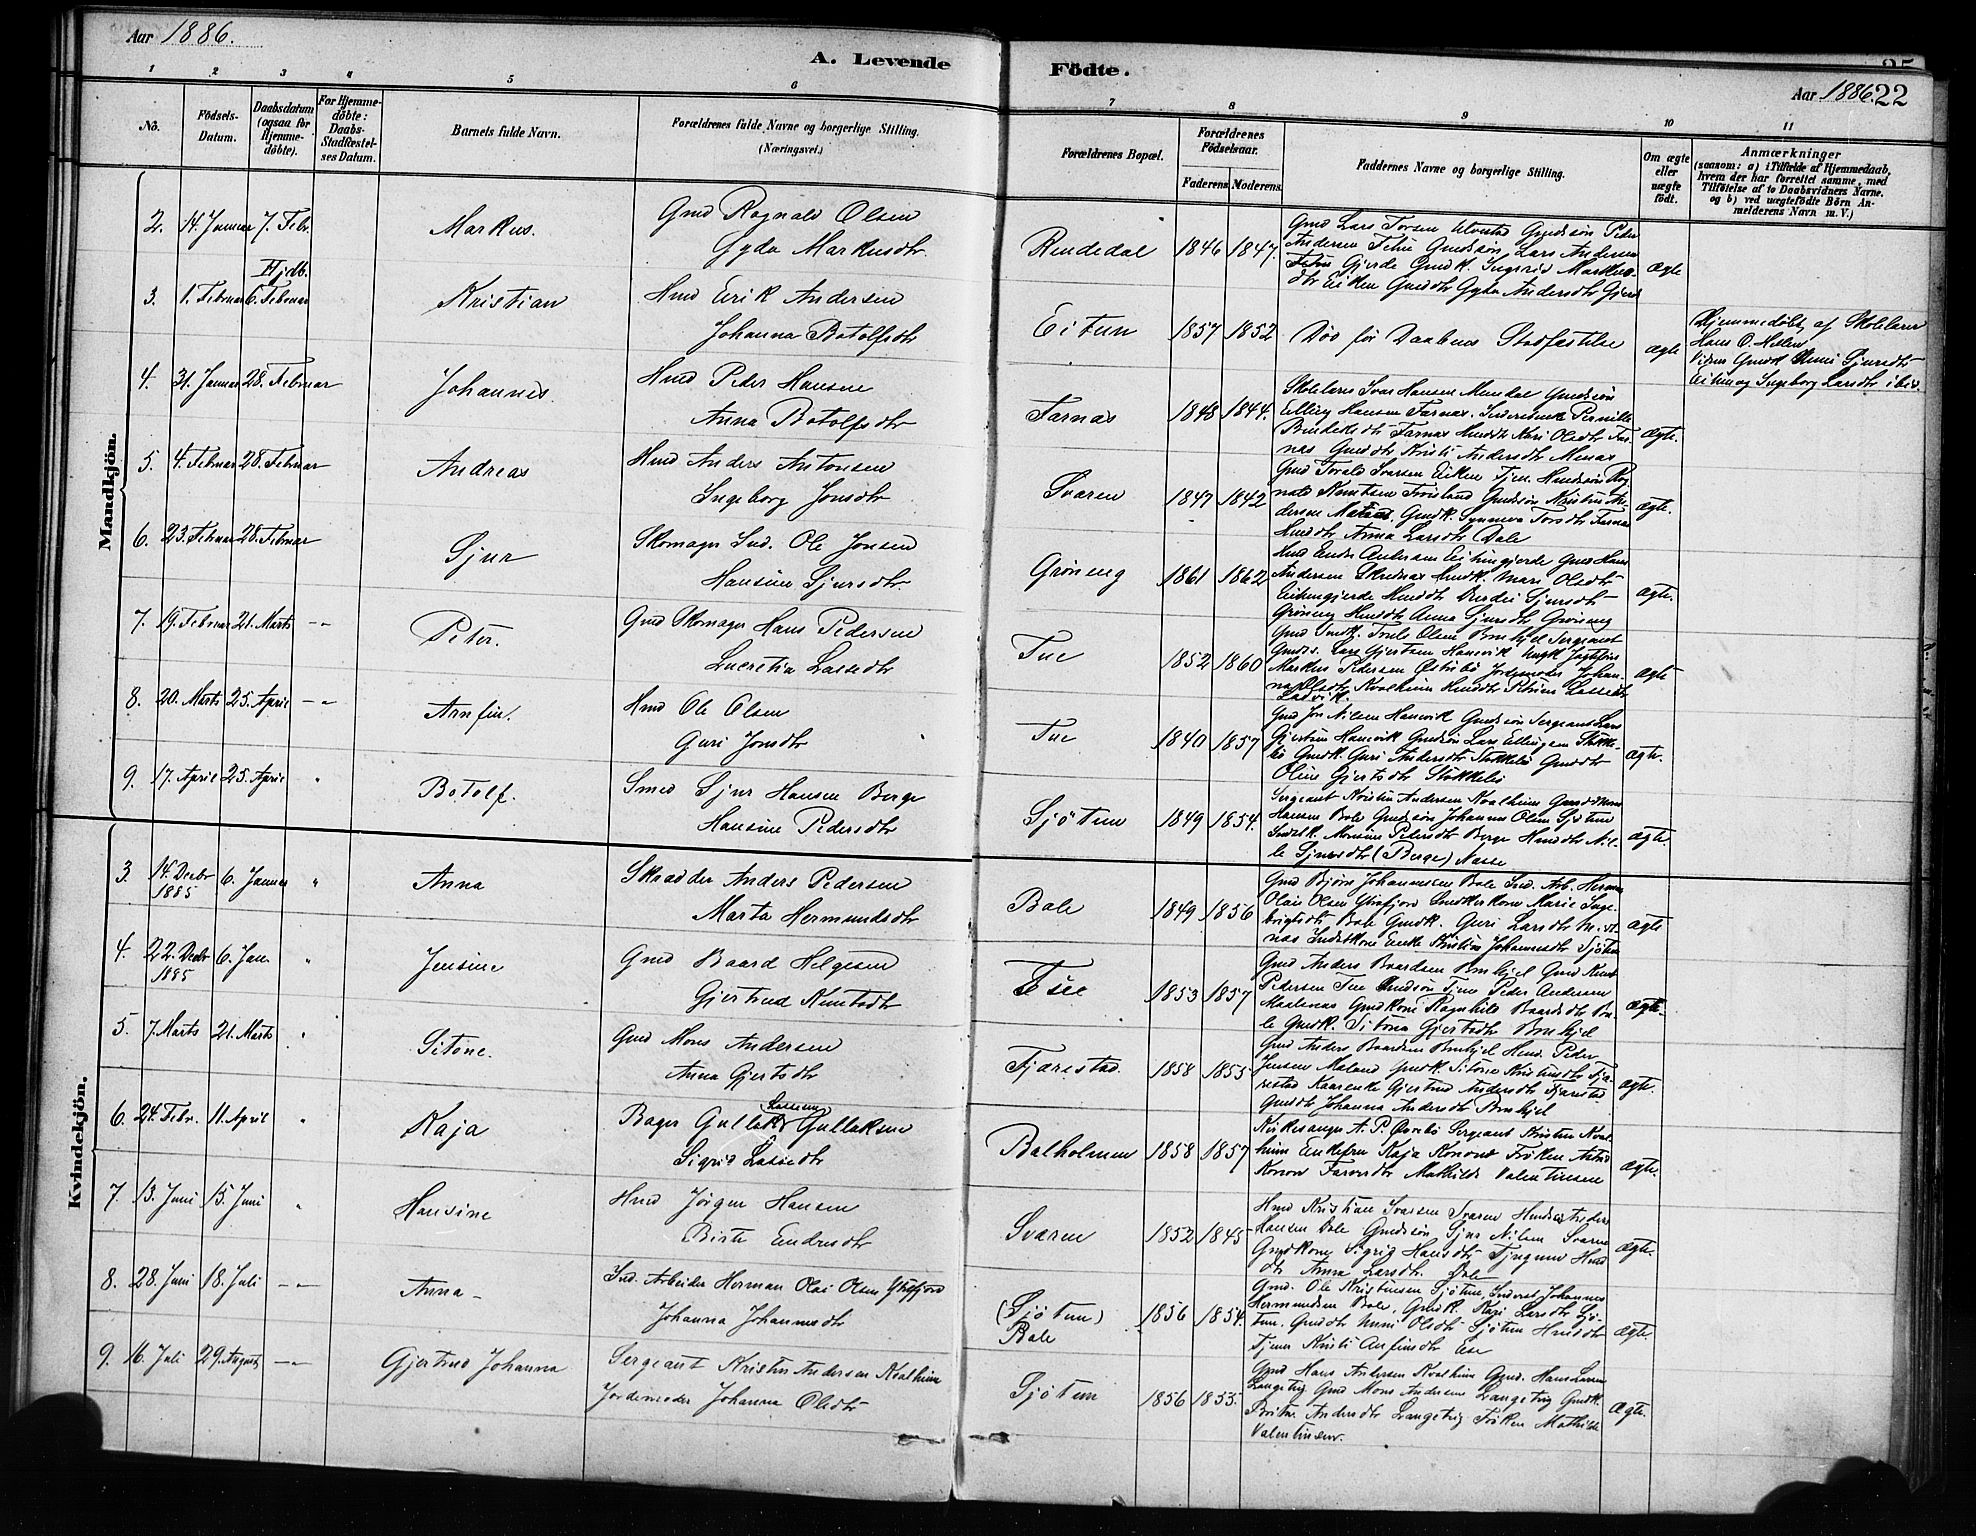 Aar 1886.
A. Levende Födte.
Aar 1886. 22
1 2 3 4 5 6 7 8 9 10 11
No.
Födsels-Datum.
Daabsdatum (ogsaa for Hjemme-døbte).
For Hjemme-døbte: Daabs-Stadfæstel-ses Datum.
Barnets fulde Navn.
Forældrenes fulde Navne og borgerlige Stilling.
(Næringsvei.)
Forældrenes Bopæl.
Forældrenes Födselsaar.
Faderens Moderens.
Faddernes Navne og borgerlige Stilling.
Om ægte eller uægte født.
Anmærkninger
(saasom: a) i Tilfælde af Hjemmedaab,
hvem der har forrettet samme, med
Tilføielse af to Daabsvidners Navne.
og b) ved uægtefødte Börn An-
melderens Navn m. V.)
Mandkjön.
2. 14. Januar 7. Febr. Markus. Gmd Ragnald Olsen
Gyda Markusdtr
Rendedal 1846 1847.
Gmd Lars Torsen Gmdsön Peder
Andersen Gmdsön Lars Andersen
Gjerde Gmdk. Ingerid Markus-
dtr Eiken Gmddtr Gyda Andersdtr Gjerde
ægte
Hjdb.
3. 1. Februar 6. Februar Kristian Hmd Eirik Andersen
Johanna Botolfsdtr
Eitun 1857 1852 Död før Daabens Stadfæstelse ægte
Hjemmedøbt af Skolelærer
Hans O. Midlen
Vidner Gmdk Unni Sjursdtr
Eitun og Ingeborg Larsdtr ibid.
4. 31. Januar 28. Februar Johannes. Hmd Peder Hansen
Anna Botolfsdtr
Farnæs 1848 1844.
Skolelærer Ivar Hansen Mundal Gmdsön
Elling Hansen Farnæs. Pernille
Farnæs Hmddtr Kari Olsdtr Far-
næs Gmddtr Kristi Andersdtr
ægte.
5. 4. Februar 28. Februar Andreas Hmd Anders Antonsen
Ingeborg Jonsdtr
Sværen 1847 1842
Gmd Torald Ivarsen Eiken Tjen. Hmdsön Rog-
nald Knutsen Gmdsön Kristen An-
dersen Gmdk. Synneva Torsdtr Farnæs
Hmddtr Anna Larsdtr Dale
ægte.
6. 23. Februar 28. Februar Sjur Skomager Ind. Ole Jonsen
Hansine Sjursdtr.
Gröneng 1861 1862
Hmd Endre Andersen Eitungjerde Gmd Hans
Andersen Skrednæs Hmdk. Mari Olsdtr
Eitungjerde Hmddtr Sjursdtr
Gröneng Hmddtr Anna Sjursdtr Gröneng
ægte.
7. 19. Februar 21. Marts -"- Peter. Gmd Skomager Hans Pedersen
Lucretia Lassedtr
Tue 1852 1860
Olsen Sergeant
Gmds. Lars Gjertsen Hanevik
Markus Pedersen Jordemoder Johan-
na Olsdtr Kvalheim Hmddtr Petrine Lassedtr
Ladvik.
ægte
8. 20. Marts 25. April -"- Arnfin. Hmd Ole Olsen
Guri Jonsdtr
Tue 1840 1857
Gmd Jon Nilsen Hanevik Gmdsön Sergeant Lars
Gjertsen Hanevik Gmdsön Lars Ellingsen Stokke-
bö Gmdk. Guri Andersdtr Stokkebö Gmddtr
Oline Gjertsdtr Stokkebö
ægte.
9. 17. April 25. April " Botolf. Smed Sjur Hansen Berge
Hansine Pedersdtr
Sjötun 1849 1854.
Sergeant Kristen Andersen Kvalheim
Hansen Bale Gmdsön Johannes Olsen Sjötun
Monsine Pedersdtr Berge Hmddtr Nil-
le Sjursdtr (Berge) Nesse
ægte.
Kvindekjön.
3. 14. Decbr 1885 6. Januar " Anna Skrædder Anders Pedersen
Marta Hermundsdtr
Bale 1849 1856
Gmd Björn Johannessen Bale Ind. Arb. Herman
Olai Olsen Ytrefjord Marie Inge-
brigtsdtr Bale Gmdk. Guri Larsdtr
næs Enke Kristine Johannesdtr Sjötun
ægte
4. 22. Decbr 1885 6. Jan. " Jensine Gmd Baard Helgesen
Gjertrud Knutsdtr
Tue 1853 1857
Gmd Anders Baardsen Brnhjel Gmd Knut
Pedersen Tue Gmdsön Tjen. Peder Andersen
Gmdkone Ragnhild Baardsdtr Ba-
le Gmdk. Sitona Gjertsdtr Brnhjel
ægte.
5. 7. Marts 21. Marts " Sitone. Gmd Mons Andersen
Anna Gjertsdtr
Fjærestad. 1858 1855
Gmd Anders Baardsen Brnhjel Hmd. Peder
Jensen Maland Gmdk. Sitone Kristensdtr Fjæ-
restad Kaarenke Gjertrud Andersdtr Fjærestad
Gmddtr Johanna Andersdtr Brnhjel
ægte.
6. 24. Febr. 11. April " Kaja Bager Gullak Lassen Gullaksen
Sigrid Lassedtr
Balholmen 1858 1857
Kirkesanger A. P. Övrebö Sergeant Kristen Kval-
heim Enkefru Kaja Konow Fröken Astrid
Konow Mathilde Valentinsen
ægte.
7. 13. Juni 15. Juni " Hansine Hmd Jörgen Hansen
Birte Endresdtr
Sværen 1852 1845
Hmd Kristian Ivarsen Sværen Hmdsön Anders
Hansen Dale Gmdsön Sjur Nilsen Sværen
Gmdkone Sigrid Hansdtr Hmd
dtr Anna Larsdtr. Dale
ægte.
8. 28. Juni 18. Juli -"- Anna - Ind. Arbeider Herman Olai Olsen Ytrefjord
Johanna Johannesdtr
(Sjötun)
Bale
1856 1854.
Gmd. Ole Kristensen Sjötun, Johannes
Hermundsen Bale, Gmdk. Kari Larsdtr Sjö-
tun. Gmddtr Unni Olsdtr Sjötun Hmddtr
Tjener Kristi Anfinsdtr Ese
ægte.
9. 16. Juli 29. August -"- Gjertrud Johanna Sergeant Kristen Andersen Kvalheim
Jordemoder Johanna Olsdtr
Sjötun 1856 1855.
Gmd Hans Andersen Kvalheim Gmd. Hans Larsen
Langeteig Gmd Mons Andersen Langeteig Gmdk.
Andersdtr Langeteig Fröken Mathilde
Valentinsen.
ægte.